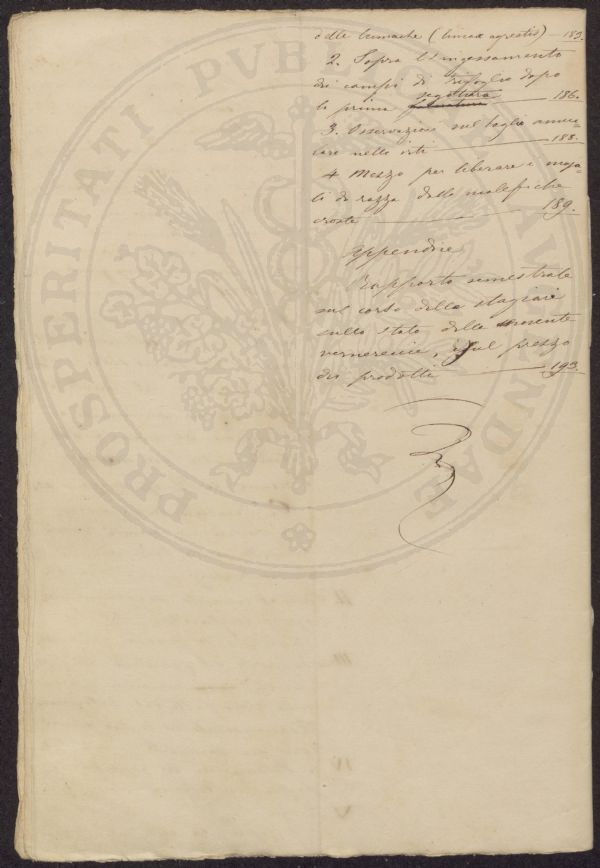 delle lumache (limax agrestis) — 183.
2. Sopra l'ingessamento
dei campi di trifoglio dopo
segatura
la prima — 186.
3. Osservazioni sul taglio annu-
ale nelle viti — 188.
4 Mezzo per liberare i maja-
li di razza dalle malefiche
croste — 189.
Appendice
Rapporto semestrale
sul corso delle stagioni
sullo stato delle
e sul prezzo
dei prodotti — 193.
PROSPERITATI PVBLICAE AVGENDAE